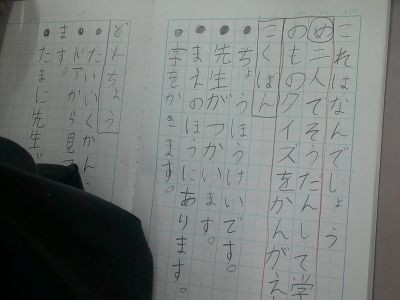 これはなんでしょう
め 二人でそうだんして学
のもののクイズをかんがえ
こくばん
●ちょうほうけいです。
●先生がつかいます。
●まえのほうにあります。
●字をかきます。
どんちょう
●たいいくかん
●ドアから見て
ます。
●たまに先生